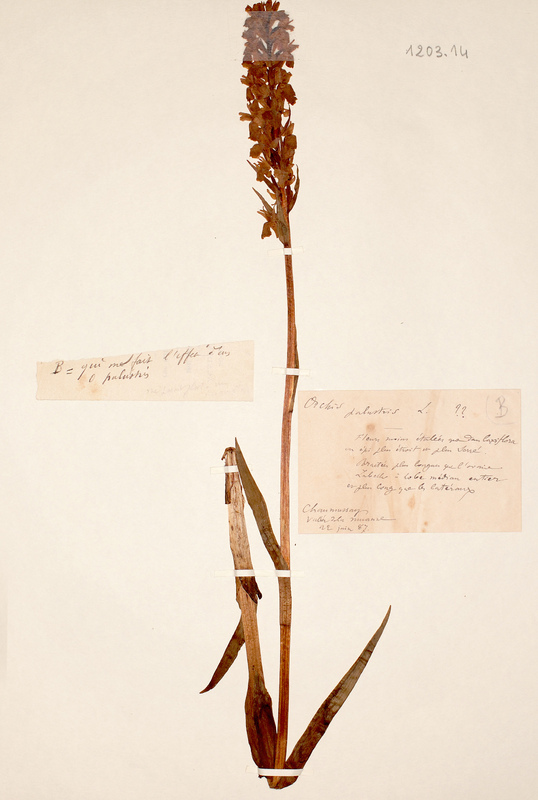 1203.14
B = qui me fait l'effet d'un
O palustris
Orchis palustris L ?? B
Fleurs moins étalées que dans laxiflora
en épi plus étroit et plus serré
Bractées plus longues que l'ovaire
Labelle à lobe médian entier
et plus long que les latéraux
Chaumussay
Vallée de la
22 juin 87